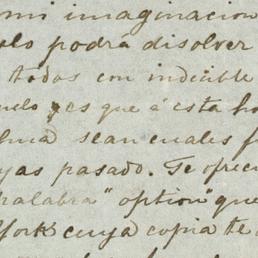 mi imaginacion
podrá disolver
todos con indecible
es que á esta ho
sean cuales f
yas pasado. Te ofrec
palabra" option" que
York cuya copia te